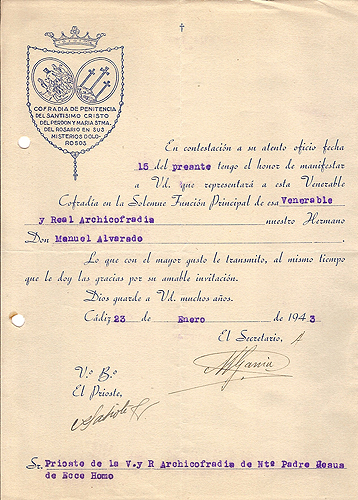 COFRADIA DE PENITENCIA
DEL SANTISIMO CRISTO
DEL PERDON Y MARIA STMA.
DEL ROSARIO EN SUS
MISTERIOS DOLO-
ROSOS
En contestación a su atento oficio fecha
15 del presnte tengo el honor de manifestar
a Vd. que representará a esta Venerable
Cofradía en la Solemne Función Principal de esa Venerable
y Real Archicofradia nuestro Hermano
Don Manuel Alvarado.
Lo que con el mayor gusto le transmito, al mismo tiempo
que le doy las gracias por su amable invitación.
Dios guarde a Vd. muchos años.
Cádiz 23 de Enero de 1943
El Secretario,
V.º B.º
El Prioste,
Sr. Prioste de la V.y R Archicofradia de Ntº Padre Jesus
de Ecce Homo